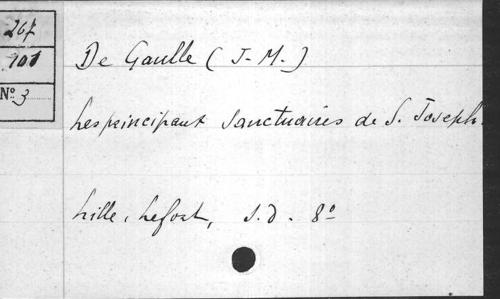 267
101
N° 3
De Gaulle (J-M.)
Les principaux sanctuaires de S. Joseph.
Lille, Lefort, s.d. 8°